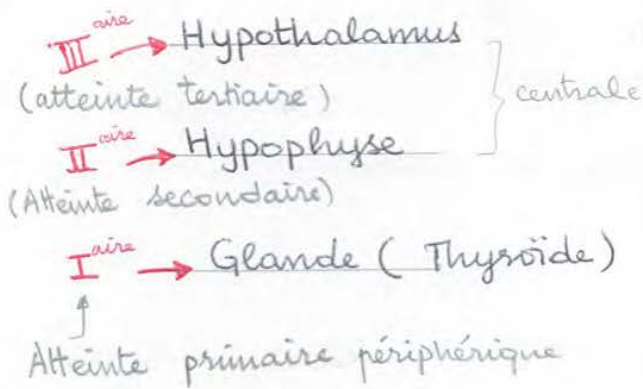 III aire → Hypothalamus
(atteinte tertiaire)
centrale
II aire → Hypophyse
(Atteinte secondaire)
I aire → Glande (Thyroïde)
Atteinte primaire périphérique